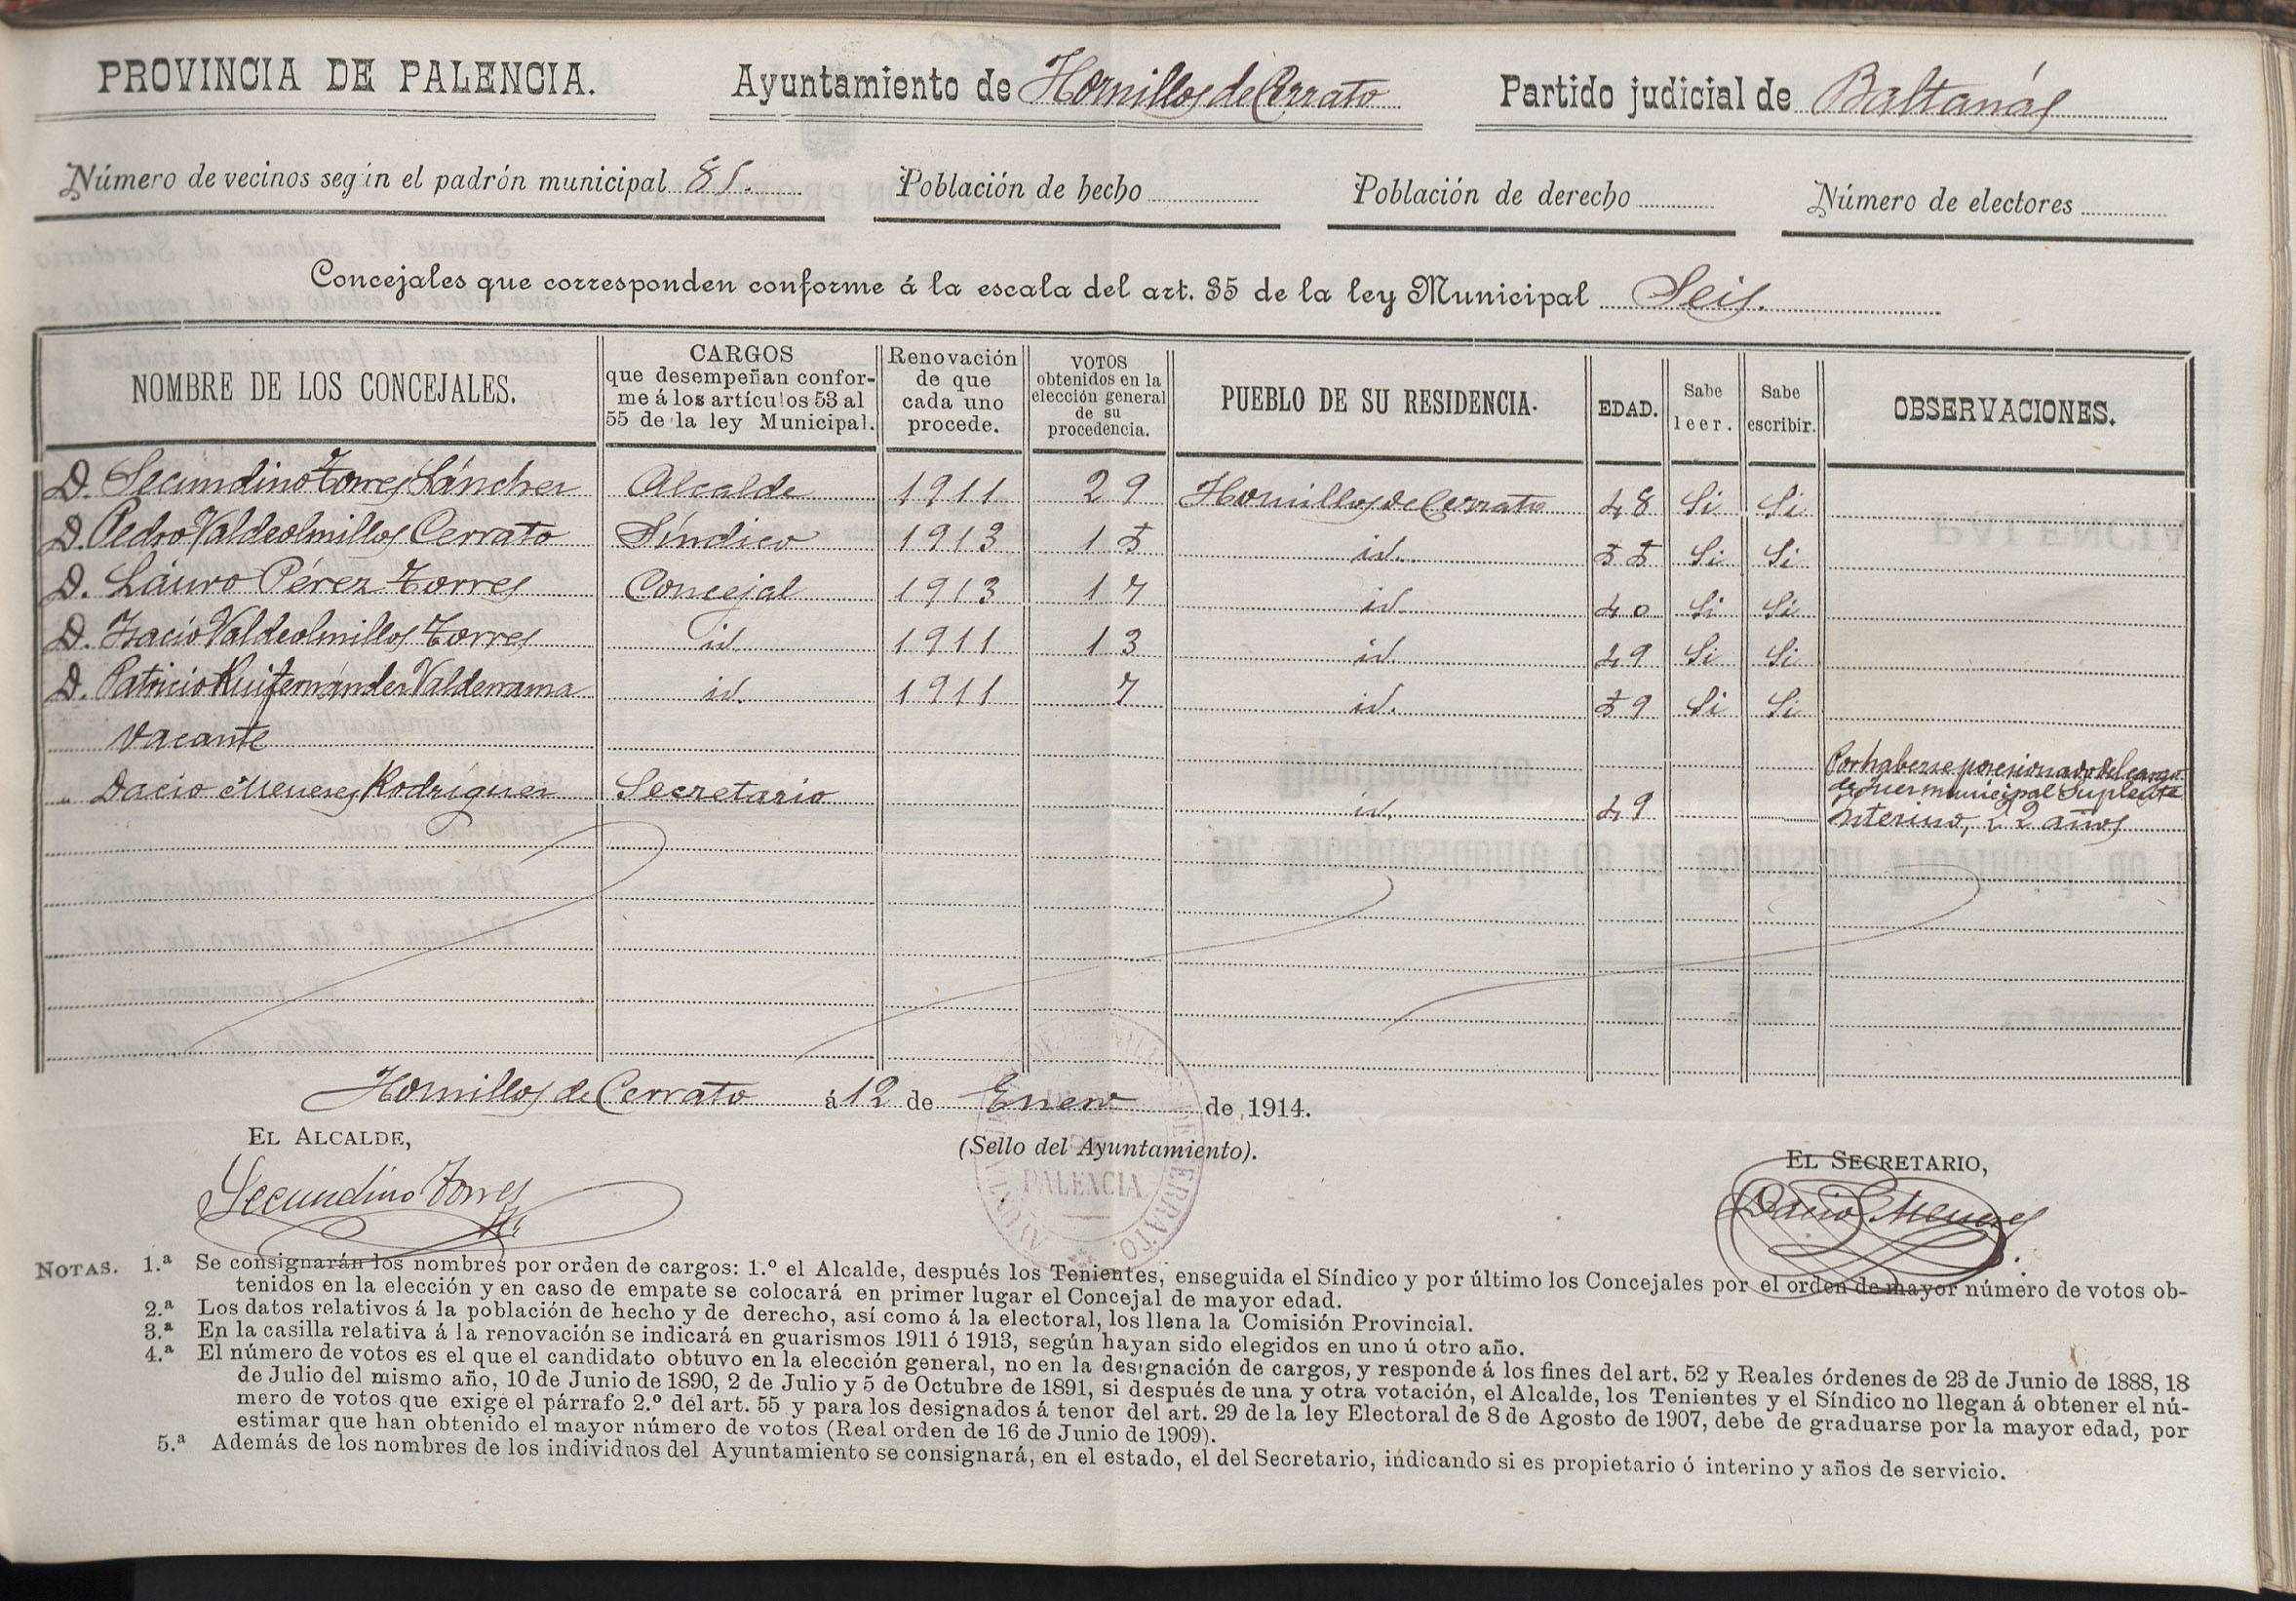 PROVINCIA DE PALENCIA. Ayuntamiento de Hornillos de Cerrato Partido judicial de Baltanás
Número de vecinos según el padrón municipal 81. Población de hecho Población de derecho Número de electores
Concejales que corresponden conforme á la escala del art. 35 de la ley Municipal Seis.
NOMBRE DE LOS CONCEJALES. CARGOS que desempeñan conforme á los artículos 53 al 55 de la ley Municipal. Renovación de que cada uno procede. VOTOS obtenidos en la elección general de su procedencia. PUEBLO DE SU RESIDENCIA. EDAD. Sabe leer. Sabe escribir. OBSERVACIONES.
D. Secundino Torres Sánchez Alcalde 1911 29 Hornillos de Cerrato 48 Si Si
D. Pedro Valdeolmillos Cerrato Síndico 1913 15 id. 55 Si Si
D. Láuro Pérez Torres Concejal 1913 17 id. 40 Si Si
D. Isacio Valdeolmillos Torres id. 1911 13 id. 49 Si Si
D. Patricio Ruifernández Valderrama id. 1911 7 id. 59 Si Si
Vacante Por haberse posesionado del cargo
de Juez municipal Suplente
" Dacio Meneses Rodríguez Secretario id. 49 Interino, 22 años
Hornillos de Cerrato á 12 de Enero de 1914.
EL ALCALDE, (Sello del Ayuntamiento). EL SECRETARIO,
PALENCIA
Secundino Torres Dacio Meneses
NOTAS. 1.ª Se consignarán los nombres por orden de cargos: 1.º el Alcalde, después los Tenientes, enseguida el Síndico y por último los Concejales por el orden de mayor número de votos ob-
tenidos en la elección y en caso de empate se colocará en primer lugar el Concejal de mayor edad.
2.ª Los datos relativos á la población de hecho y de derecho, así como á la electoral, los llena la Comisión Provincial.
3.ª En la casilla relativa á la renovación se indicará en guarismos 1911 ó 1913, según hayan sido elegidos en uno ú otro año.
4.ª El número de votos es el que el candidato obtuvo en la elección general, no en la designación de cargos, y responde á los fines del art. 52 y Reales órdenes de 23 de Junio de 1888, 18
de Julio del mismo año, 10 de Junio de 1890, 2 de Julio y 5 de Octubre de 1891, si después de una y otra votación, el Alcalde, los Tenientes y el Síndico no llegan á obtener el nú-
mero de votos que exige el párrafo 2.º del art. 55 y para los designados á tenor del art. 29 de la ley Electoral de 8 de Agosto de 1907, debe de graduarse por la mayor edad, por
estimar que han obtenido el mayor número de votos (Real orden de 16 de Junio de 1909).
5.ª Además de los nombres de los individuos del Ayuntamiento se consignará, en el estado, el del Secretario, indicando si es propietario ó interino y años de servicio.